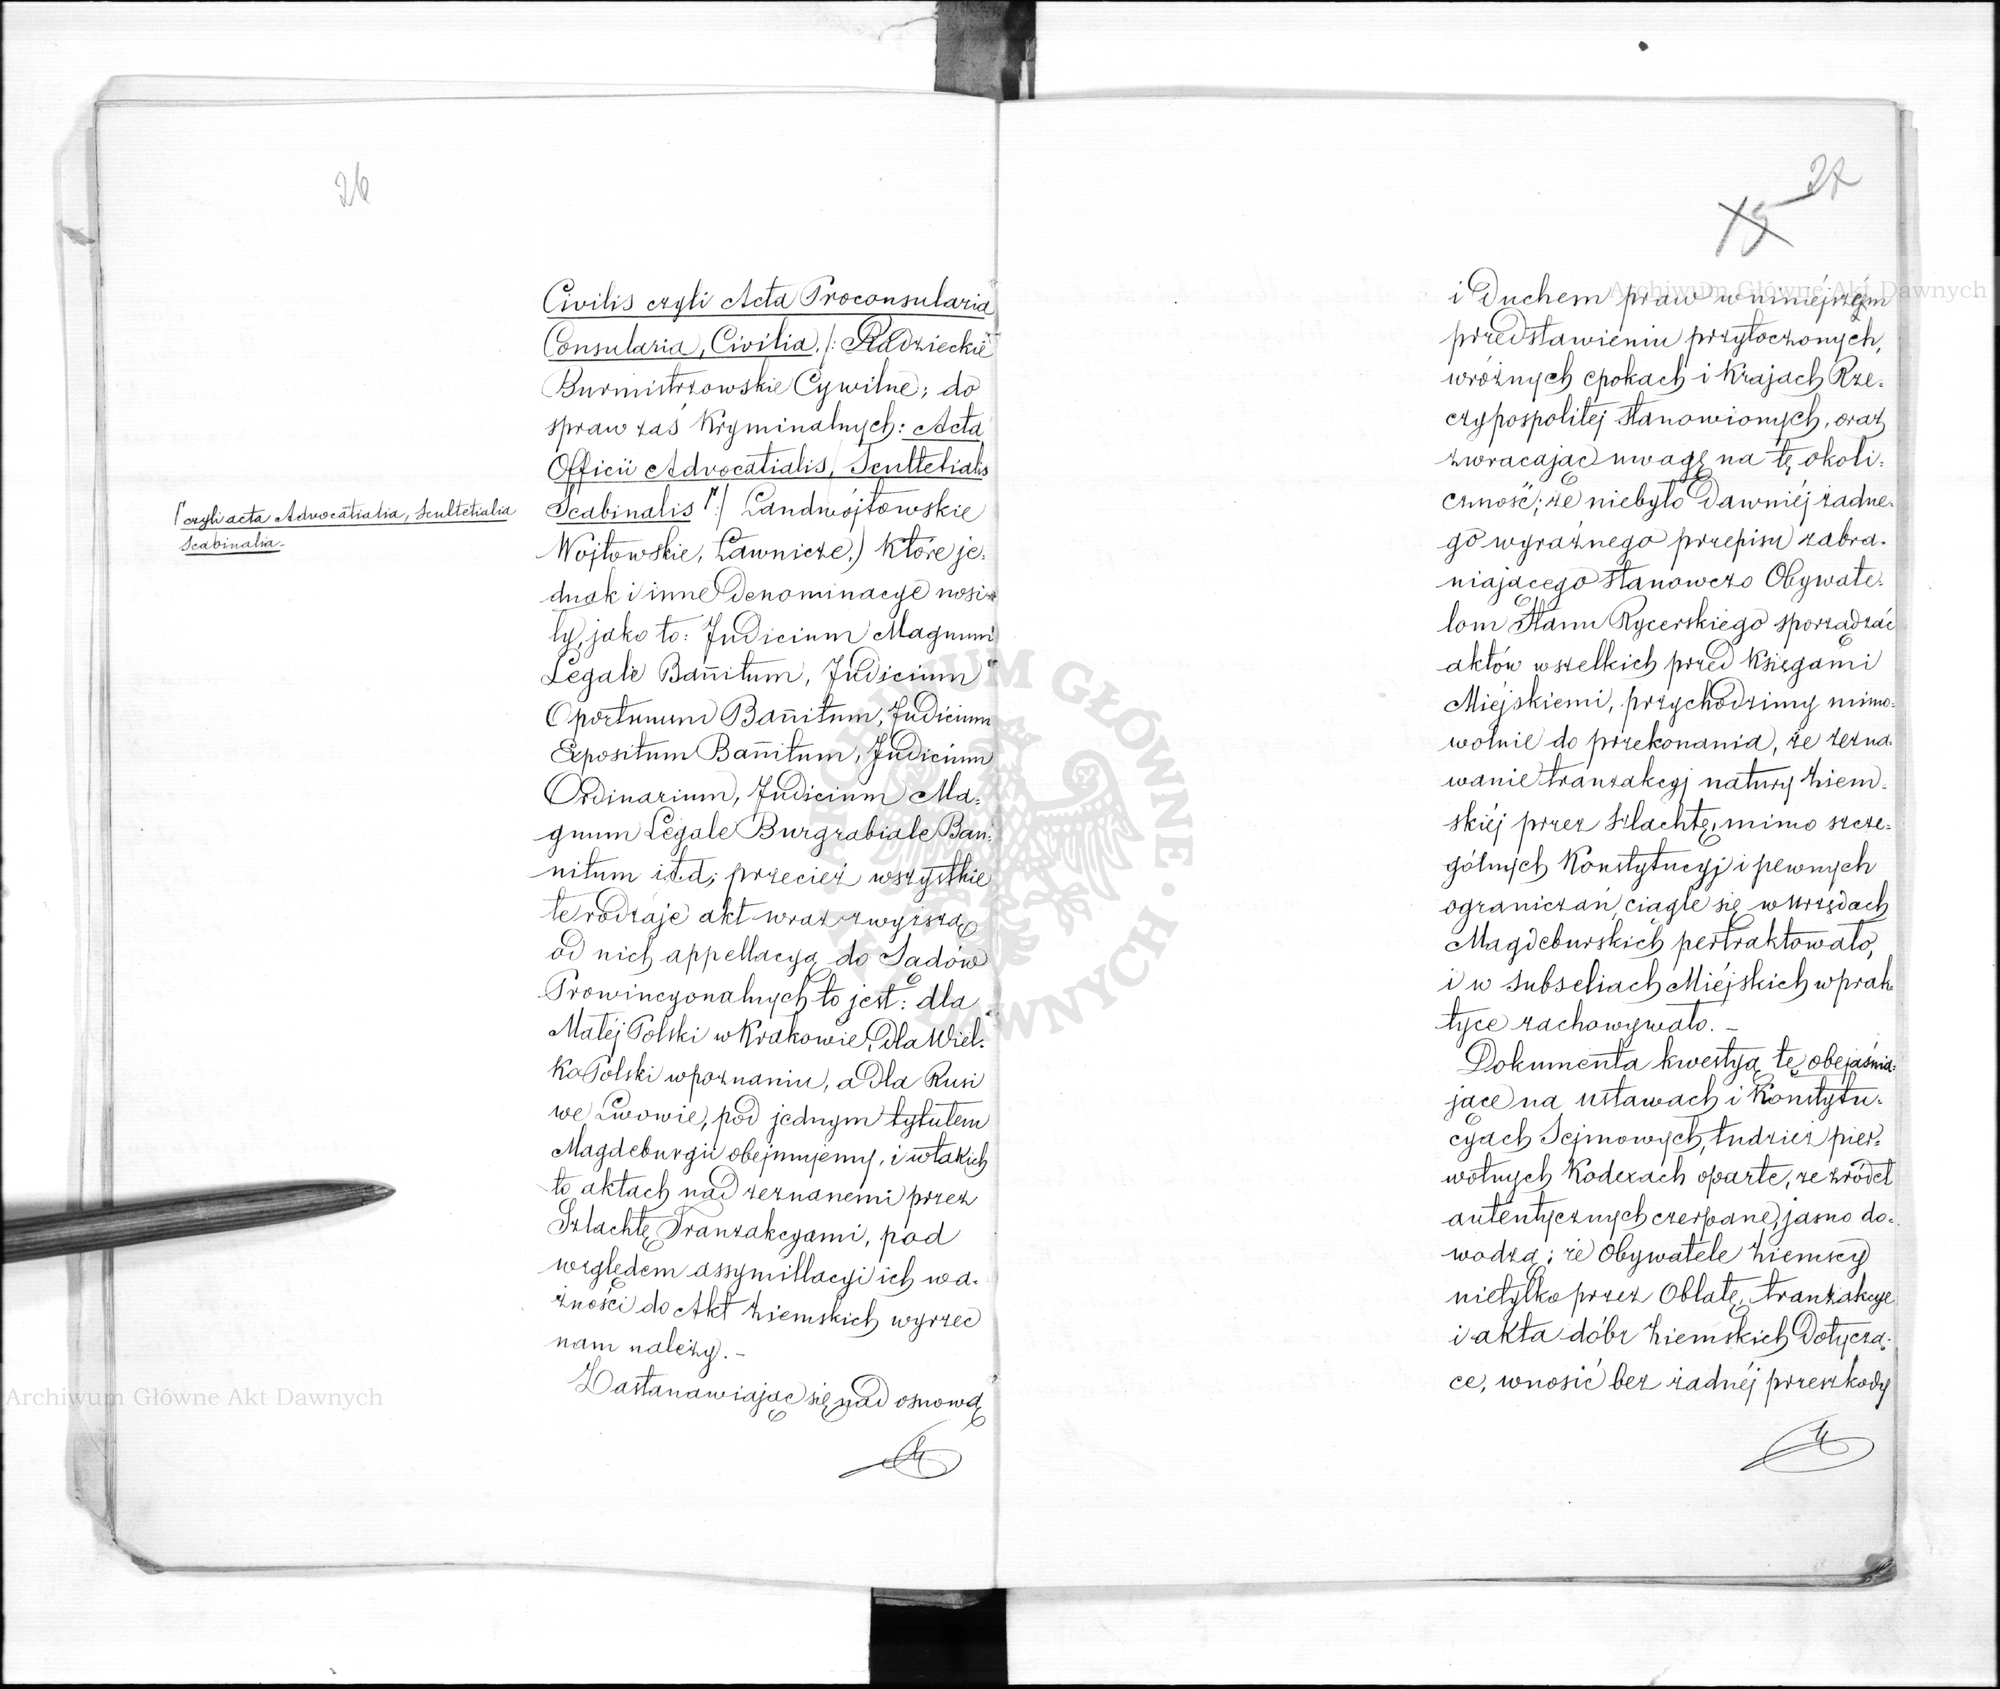 26
Civilis czyli Acta Proconsularia
Consularia, Civilia. /: Radzieckie
Burmistrzowskie Cywilne; do
spraw zaś Kryminalnych: Acta
Officii Advocatialis, Scultetialis
Scabinalis ⌈:/ Landwójtowskie
⌈ czyli acta Advocatialia, Scultetialia
Scabinalia.
Wojtowskie, Ławnicze.) które je-
dnak i inne denominacye nosi-
ły, jako to: Judicium Magnum
Legale Bañitum, Judicium
Oportunum Bañitum, Judicium
Expositum Bañitum, Judicium
Ordinarium, Judicium Ma-
gnum Legale Burgrabiale Ban-
nitum itd; przecież wszystkie
te rodzaje akt wraz z wyższą
od nich appellacyą do Sądów
Prowincyonalnych to jest: dla
Małéj Polski w Krakowie, dla Wiel-
ko Polski w poznaniu, a dla Rusi
we Lwowie, pod jednym tytułem
Magdeburgii obejmujemy, i w takich
to aktach nad zeznanemi przez
Szlachtę Tranzakcyami, pod
względem assymillacyi ich wa-
żności do Akt Ziemskich wyrzec
nam należy. -
Zastanawiając się nad osnową
27
15
i duchem praw w niniéjszém
przedstawieniu przytoczonych,
w różnych epokach i Krajach Rze-
czypospolitéj stanowionych, oraz
zwracając uwagę na tę okoli-
czność; że niebyło dawniéj żadne-
go wyraźnego przepisu zabra-
niającego stanowczo Obywate-
lom Stanu Rycerskiego sporządzać
aktów wszelkich przed Księgami
Miéjskiemi, przychodzimy mimo-
wolnie do przekonania, że zezna-
wanie tranzakcyj natury Ziem-
skiéj przez Szlachtę, mimo szcze-
gólnych Konstytucyj i pewnych
ograniczań, ciągle się w Urzędach
Magdeburskich pertraktowało,
i w Subseliach Miéjskich w prak-
tyce zachowywało. -
Dokumenta kwestyą tę objaśnia-
jące na ustawach i Konstytu-
cyach Sejmowych, tudzież pier-
wotnych Kodexach oparte, ze źródeł
autentycznych czerpane, jasno do-
wodzą; że Obywatele Ziemscy
nietylko przez Oblatę, tranzakcye
i akta dóbr Ziemskich dotyczą-
ce, wnosić bez żadnéj przeszkody
Archiwum Główne Akt Dawnych
Archiwum Główne Akt Dawnych
ARCHIWUM GŁÓWNE AKT DAWNYCH